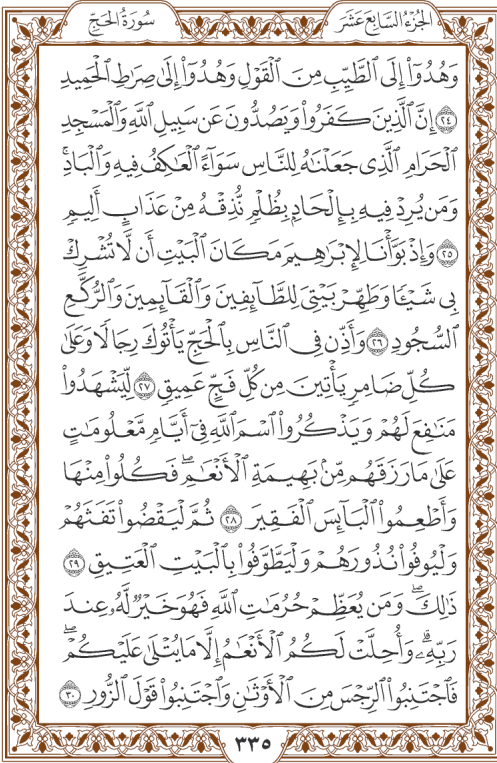 الجزء السابع عشر
سورة الحج
وَهُدُوٓاْ إِلَى ٱلطَّيِّبِ مِنَ ٱلۡقَوۡلِ وَهُدُوٓاْ إِلَىٰ صِرَٰطِ ٱلۡحَمِيدِ
٢٤ إِنَّ ٱلَّذِينَ كَفَرُواْ وَيَصُدُّونَ عَن سَبِيلِ ٱللَّهِ وَٱلۡمَسۡجِدِ
ٱلۡحَرَامِ ٱلَّذِي جَعَلۡنَٰهُ لِلنَّاسِ سَوَآءً ٱلۡعَٰكِفُ فِيهِ وَٱلۡبَادِۚ
وَمَن يُرِدۡ فِيهِ بِإِلۡحَادِۭ بِظُلۡمٖ نُّذِقۡهُ مِنۡ عَذَابٍ أَلِيمٖ
٢٥ وَإِذۡ بَوَّأۡنَا لِإِبۡرَٰهِيمَ مَكَانَ ٱلۡبَيۡتِ أَن لَّا تُشۡرِكۡ
بِي شَيۡـٔٗا وَطَهِّرۡ بَيۡتِيَ لِلطَّآئِفِينَ وَٱلۡقَآئِمِينَ وَٱلرُّكَّعِ
ٱلسُّجُودِ ٢٦ وَأَذِّن فِي ٱلنَّاسِ بِٱلۡحَجِّ يَأۡتُوكَ رِجَالٗا وَعَلَىٰ
كُلِّ ضَامِرٖ يَأۡتِينَ مِن كُلِّ فَجٍّ عَمِيقٖ ٢٧ لِّيَشۡهَدُواْ
مَنَٰفِعَ لَهُمۡ وَيَذۡكُرُواْ ٱسۡمَ ٱللَّهِ فِيٓ أَيَّامٖ مَّعۡلُومَٰتٍ
عَلَىٰ مَا رَزَقَهُم مِّنۢ بَهِيمَةِ ٱلۡأَنۡعَٰمِۖ فَكُلُواْ مِنۡهَا
وَأَطۡعِمُواْ ٱلۡبَآئِسَ ٱلۡفَقِيرَ ٢٨ ثُمَّ لۡيَقۡضُواْ تَفَثَهُمۡ
وَلۡيُوفُواْ نُذُورَهُمۡ وَلۡيَطَّوَّفُواْ بِٱلۡبَيۡتِ ٱلۡعَتِيقِ ٢٩
ذَٰلِكَۖ وَمَن يُعَظِّمۡ حُرُمَٰتِ ٱللَّهِ فَهُوَ خَيۡرٞ لَّهُۥ عِندَ
رَبِّهِۦۗ وَأُحِلَّتۡ لَكُمُ ٱلۡأَنۡعَٰمُ إِلَّا مَا يُتۡلَىٰ عَلَيۡكُمۡۖ
فَٱجۡتَنِبُواْ ٱلرِّجۡسَ مِنَ ٱلۡأَوۡثَٰنِ وَٱجۡتَنِبُواْ قَوۡلَ ٱلزُّورِ ٣٠
٣٣٥